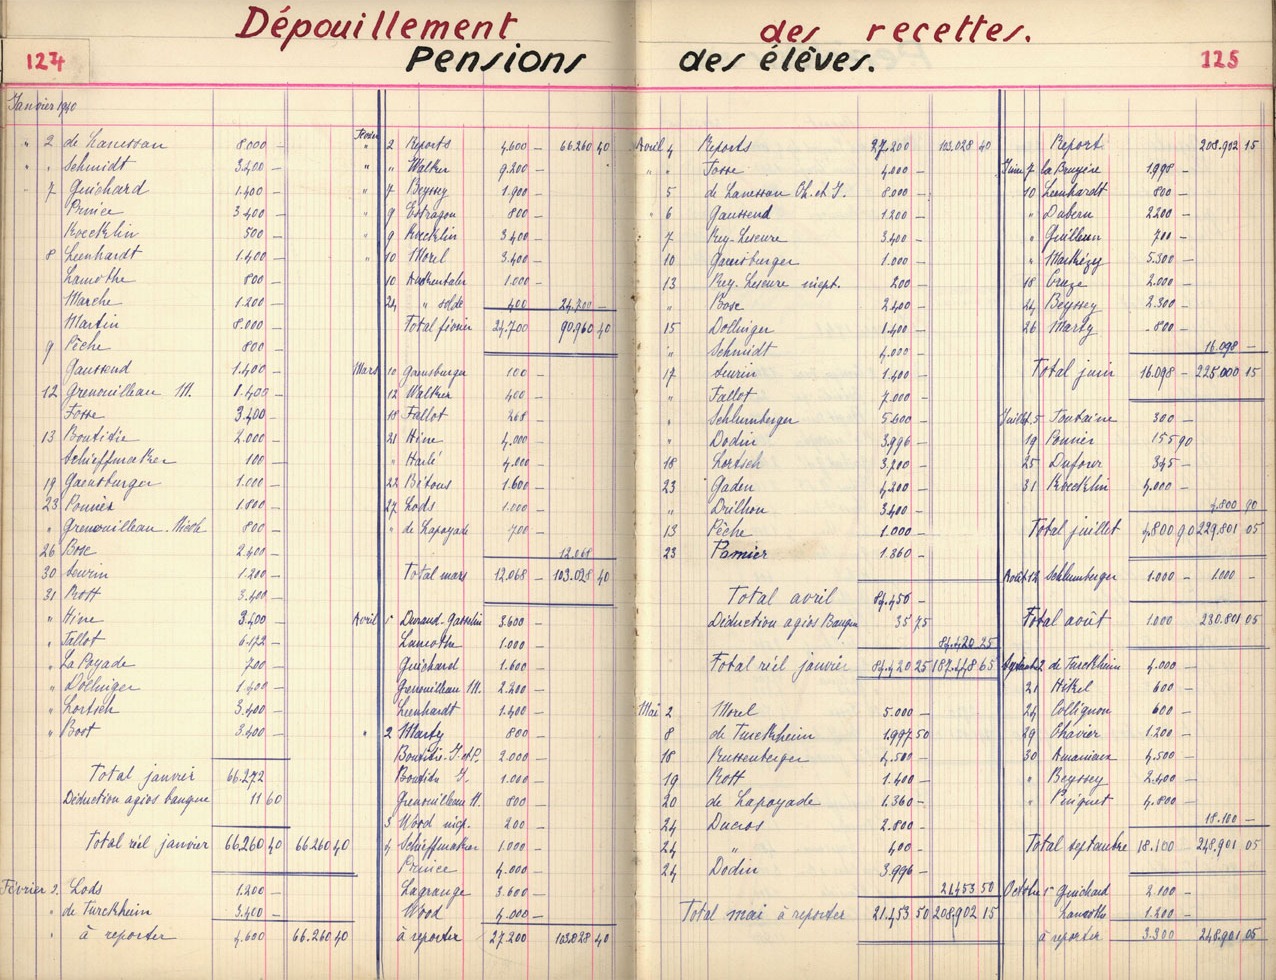 Dépouillement des recettes.
124 Pensions des élèves. 125
Janvier 1940
" 2 de Lanessan 8.000 -
" " Schmidt 3.400 -
" 7 Guichard 1.400 -
Prince 3.400 -
Koecklin 500 -
8 Leenhardt 1.400 -
Lamothe 800 -
Marche 1.200 -
Martin 8.000 -
9 Pêche 800 -
Gaussend 1.400 -
12 Grenouilleau M. 1.400 -
Fosse 3.400 -
13 Boutitie 2.000 -
Schieffmacker 100 -
19 Gaensburger 1.000 -
23 Ponnier 1.800 -
" Grenouilleau - Nicole 800 -
26 Bosc 2.400 -
30 Seurin 1.200 -
31 Rott 3.400 -
" Hine 3.400 -
" Fallot 6.172 -
" La Poyade 700 -
" Dollinger 1.400 -
" Lortsch 3.400 -
" Boot 3.400 -
Total janvier 66.272
Déduction agios banque 11 60
Total réel janvier 66.260 40 66.260 40
Février 2 Lods 1.200 -
" de Turckheim 3.400 -
" à reporter 4.600 66.260 40
Février
" 2 Reports 4.600 - 66.260 40
" " Walker 9.200 -
" 7 Beyssey 1.900 -
" 9 Estragon 800 -
" 9 Koecklin 3.400 -
" 10 Morel 3.400 -
10 Anckentaler 1.000 -
24 " solde 400 24.700 -
Total février 24.700 - 90.960 40
Mars 10 Gaensburger 100 -
12 Walker 400 -
18 Fallot 268 -
21 Hine 4.000 -
" Harlé 4.000 -
22 Bétous 1.600 -
27 Lods 1.000 -
" de Lapoyade 700 -
12.068
Total mars 12.068 - 103.028 40
Avril 1 Durand-Gasselin 3.600 -
Lamothe 1.000 -
Guichard 1.600 -
Grenouilleau M. 2.200 -
Leenhardt 1.400 -
" 2 Marty 800 -
Boutitie J. et P. 2.000 -
Boutitie J. 1.000 -
Grenouilleau N. 800 -
3 Wood insp. 200 -
4 Schieffmacker 1.000 -
Prince 4.000 -
Lagrange 3.600 -
Wood 4.000 -
à reporter 27.200 - 103.028 40
Avril 4 Reports 27.200 103.028 40
" " Fosse 4.000 -
5 de Lanessan Ch. et J. 8.000 -
" 6 Gaussend 1.200 -
7 Rey-Lescure 3.400 -
10 Gaensburger 1.000 -
13 Rey-Lescure inspt. 200 -
" Bosc 2.400 -
15 Dollinger 1.400 -
" Schmidt 4.000 -
17 Seurin 1.400 -
" Fallot 7.000 -
" Schlumberger 5.600 -
" Dodin 3.996 -
18 Lortsch 3.200 -
23 Gaden 4.200 -
" Drilhon 3.400 -
13 Pêche 1.000 -
23 Pamier 1.360 -
Total avril 84.456 -
Déduction agios Banque 35 75
84.420 25
Total réel janvier 84.420 25 187.448 65
Mai 2 Morel 5.000 -
8 de Turckheim 1.997 50
18 Russenberger 4.500 -
19 Rott 1.400 -
20 de Lapoyade 1.360 -
24 Ducros 2.800 -
24 " 400 -
24 Dodin 3.996 -
21.453 50
Total mai à reporter 21.453 50 208.902 15
Report 208.902 15
Juin 7 la Bruyère 1.998 -
10 Leenhardt 800 -
" Dabern 2200 -
" Guilleun 700 -
" Markézy 5.300 -
18 Craze 2.000 -
24 Beyssey 2.300 -
26 Marty 800 -
16.098 -
Total juin 16.098 - 225.000 15
Juillet 5 Fontaine 300 -
19 Ponnier 155 90
25 Dufour 345 -
31 Koecklin 4.000 -
4.800 90
Total juillet 4.800 90 229.801 05
Août 12 Schlumberger 1.000 - 1.000 -
Total août 1.000 - 230.801 05
Septembre 2 de Turckheim 4.000 -
21 Hikel 600 -
24 Collignon 600 -
29 Chavier 1.200 -
30 Amanieux 4.500 -
" Beyssey 2.400 -
" Puiguet 4.800 -
18.100 -
Total septembre 18.100 - 248.901 05
Octobre 1 Guichard 2.100 -
Lamothe 1.200 -
à reporter 3.300 - 248.901 05